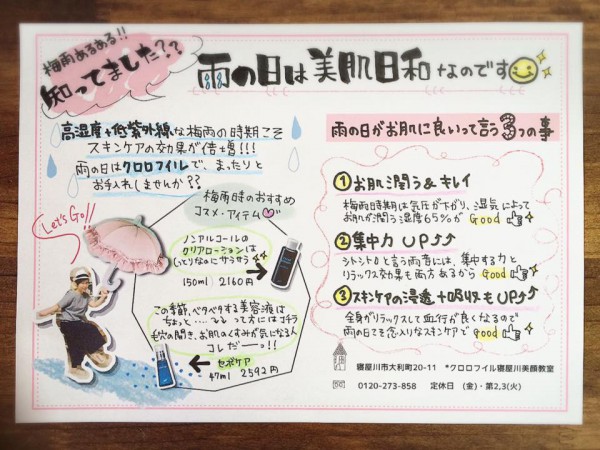 梅雨あるある!!
知ってました??
雨の日は美肌日和なのです
高湿度+低紫外線な梅雨の時期こそ
スキンケアの効果が倍増!!!
雨の日はクロロフイルで、まったりと
お手入れしませんか??
Let's Go!!
梅雨時のおすすめ
コスメ・アイテム
ノンアルコールの
クリアローションは
しっとりなのにサラサラ
150ml 2160円
この季節、ベタベタする美容液は
ちょっと....てるって方にはコチラ
毛穴の開き、お肌のくすみが気になる人
コレだー!!
セボケア
47ml 2592円
雨の日がお肌に良いって言う3つの事
①お肌潤う&キレイ
梅雨時期は気圧が下がり、湿気によって
お肌が潤う湿度65%が Good
②集中力UP↑↑
シトシトと言う雨音には、集中する力と
リラックス効果も両方あるから Good
③スキンケアの浸透+吸収もUP↑↑
全身がリラックスして血行が良くなるので
雨の日こそ念入りなスキンケアで good
寝屋川市大利町20-11 *クロロフイル寝屋川美顔教室
0120-273-858 定休日 (金)・第2,3(火)